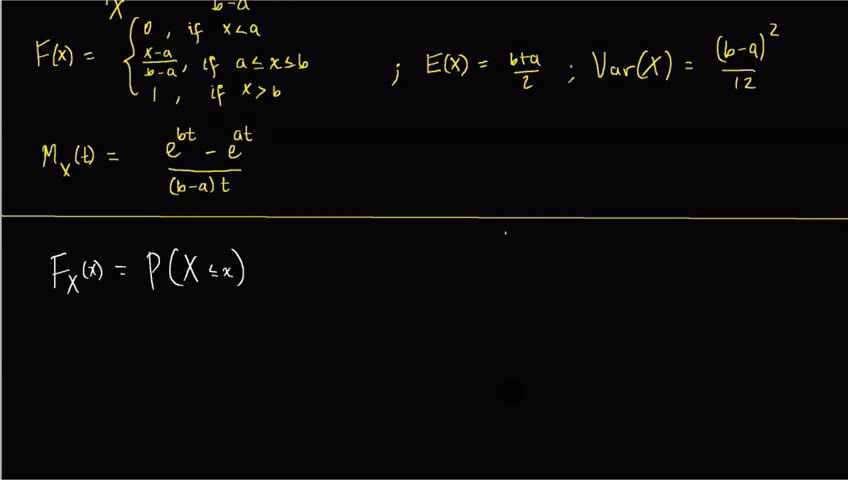 X b-a
F(x) = { 0, if x<a
x-a/b-a, if a≤x≤b
1, if x>b
; E(X) = b+a/2 ; Var(X) = (b-a)²/12
M_X(t) = e^bt - e^at / (b-a)t
F_X(x) = P(X≤x)